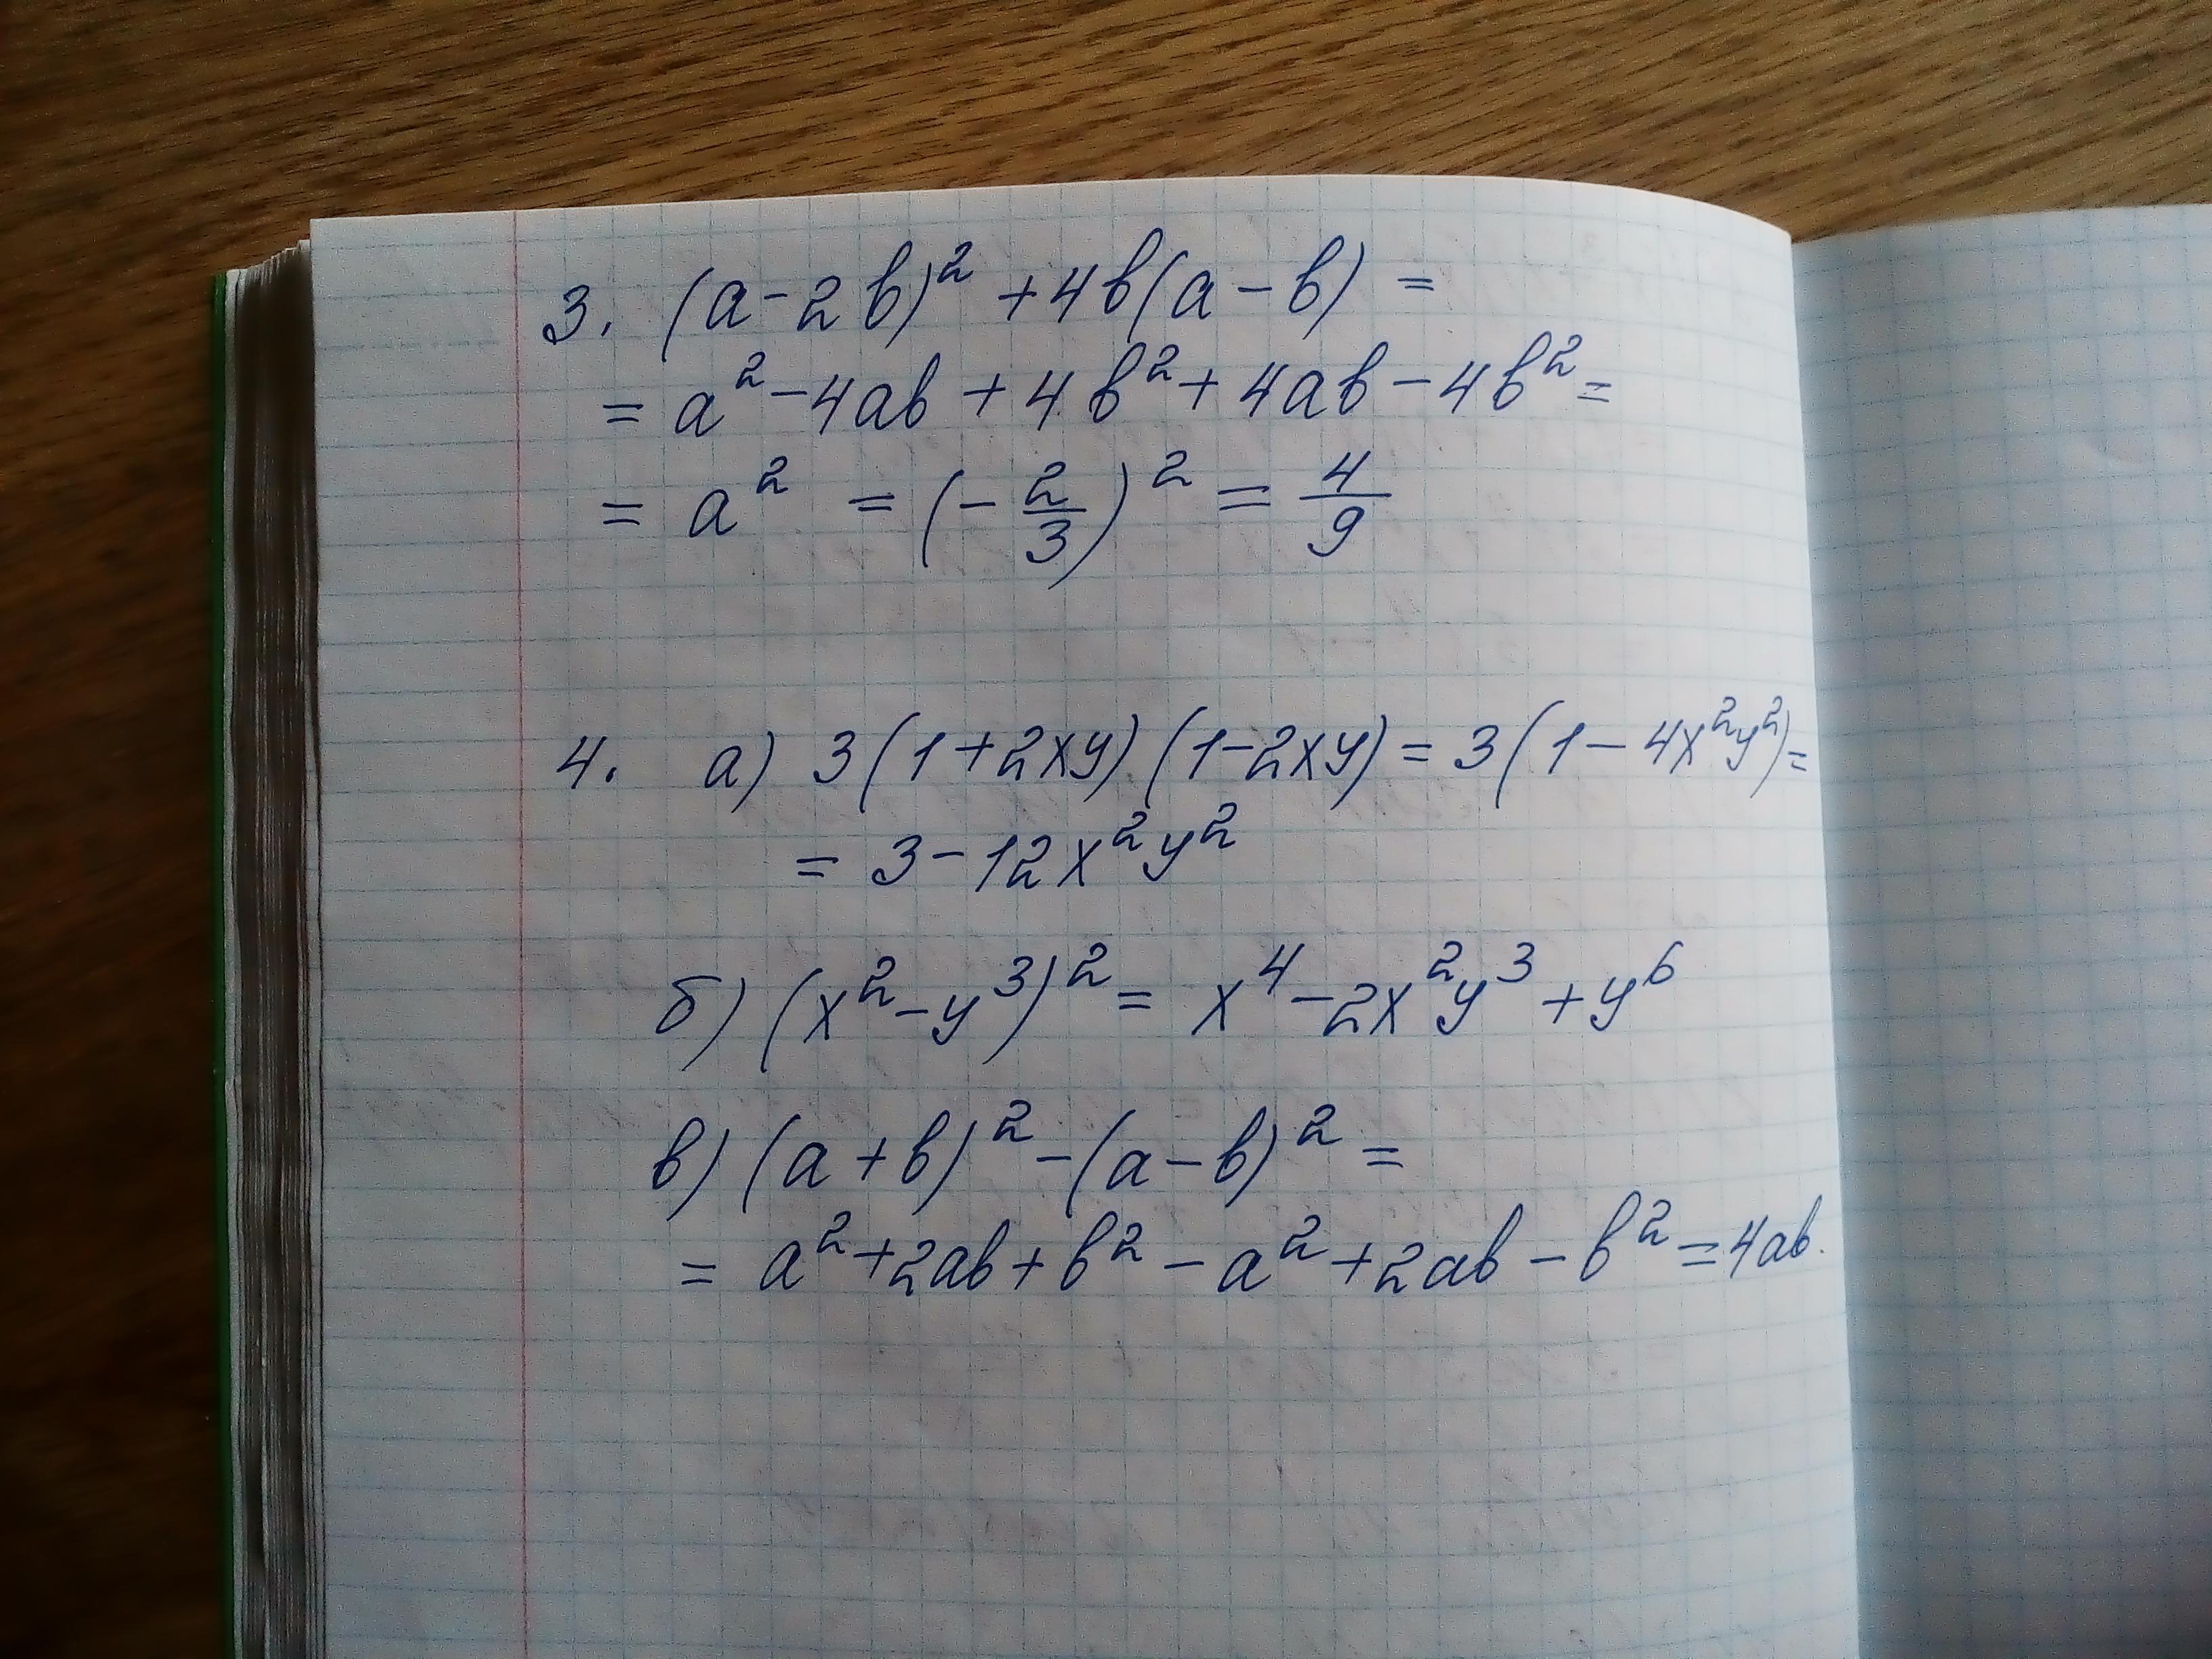 3. (a-2b)² +4b(a-b) =
= a²-4ab+4b²+4ab-4b²=
= a² = (-2/3)² = 4/9
4. а) 3(1+2xy)(1-2xy)=3(1-4x²y²)=
= 3-12x²y²
б) (x²-y³)²= x⁴-2x²y³+y⁶
в) (a+b)²-(a-b)² =
= a²+2ab+b²-a²+2ab-b²=4ab.